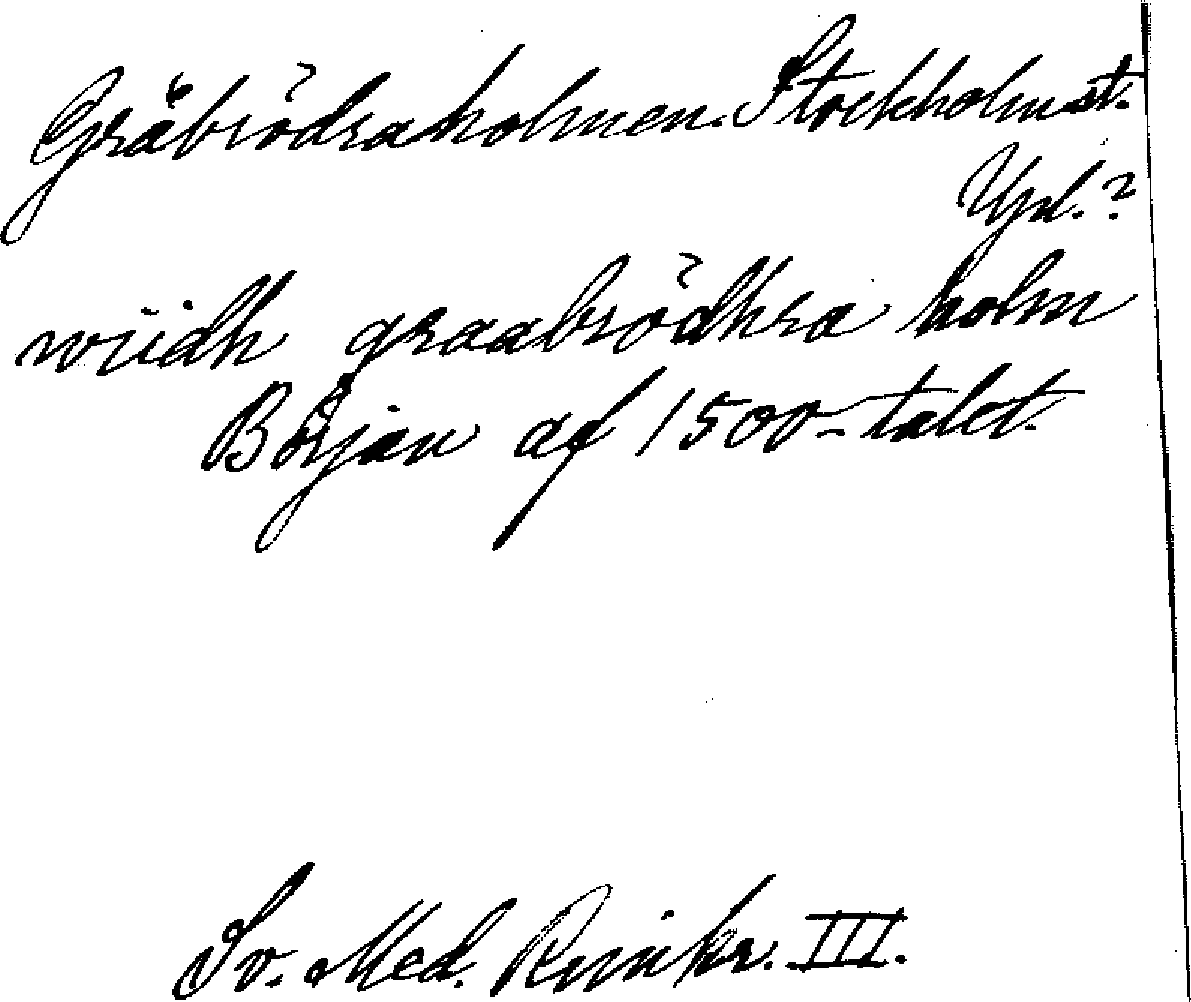 Gråbrödraholmen. Stockholms st.
Upl.?
wiidh graabrödhra holm
Början af 1500-talet.
Sv. Med. Rimkr. III.